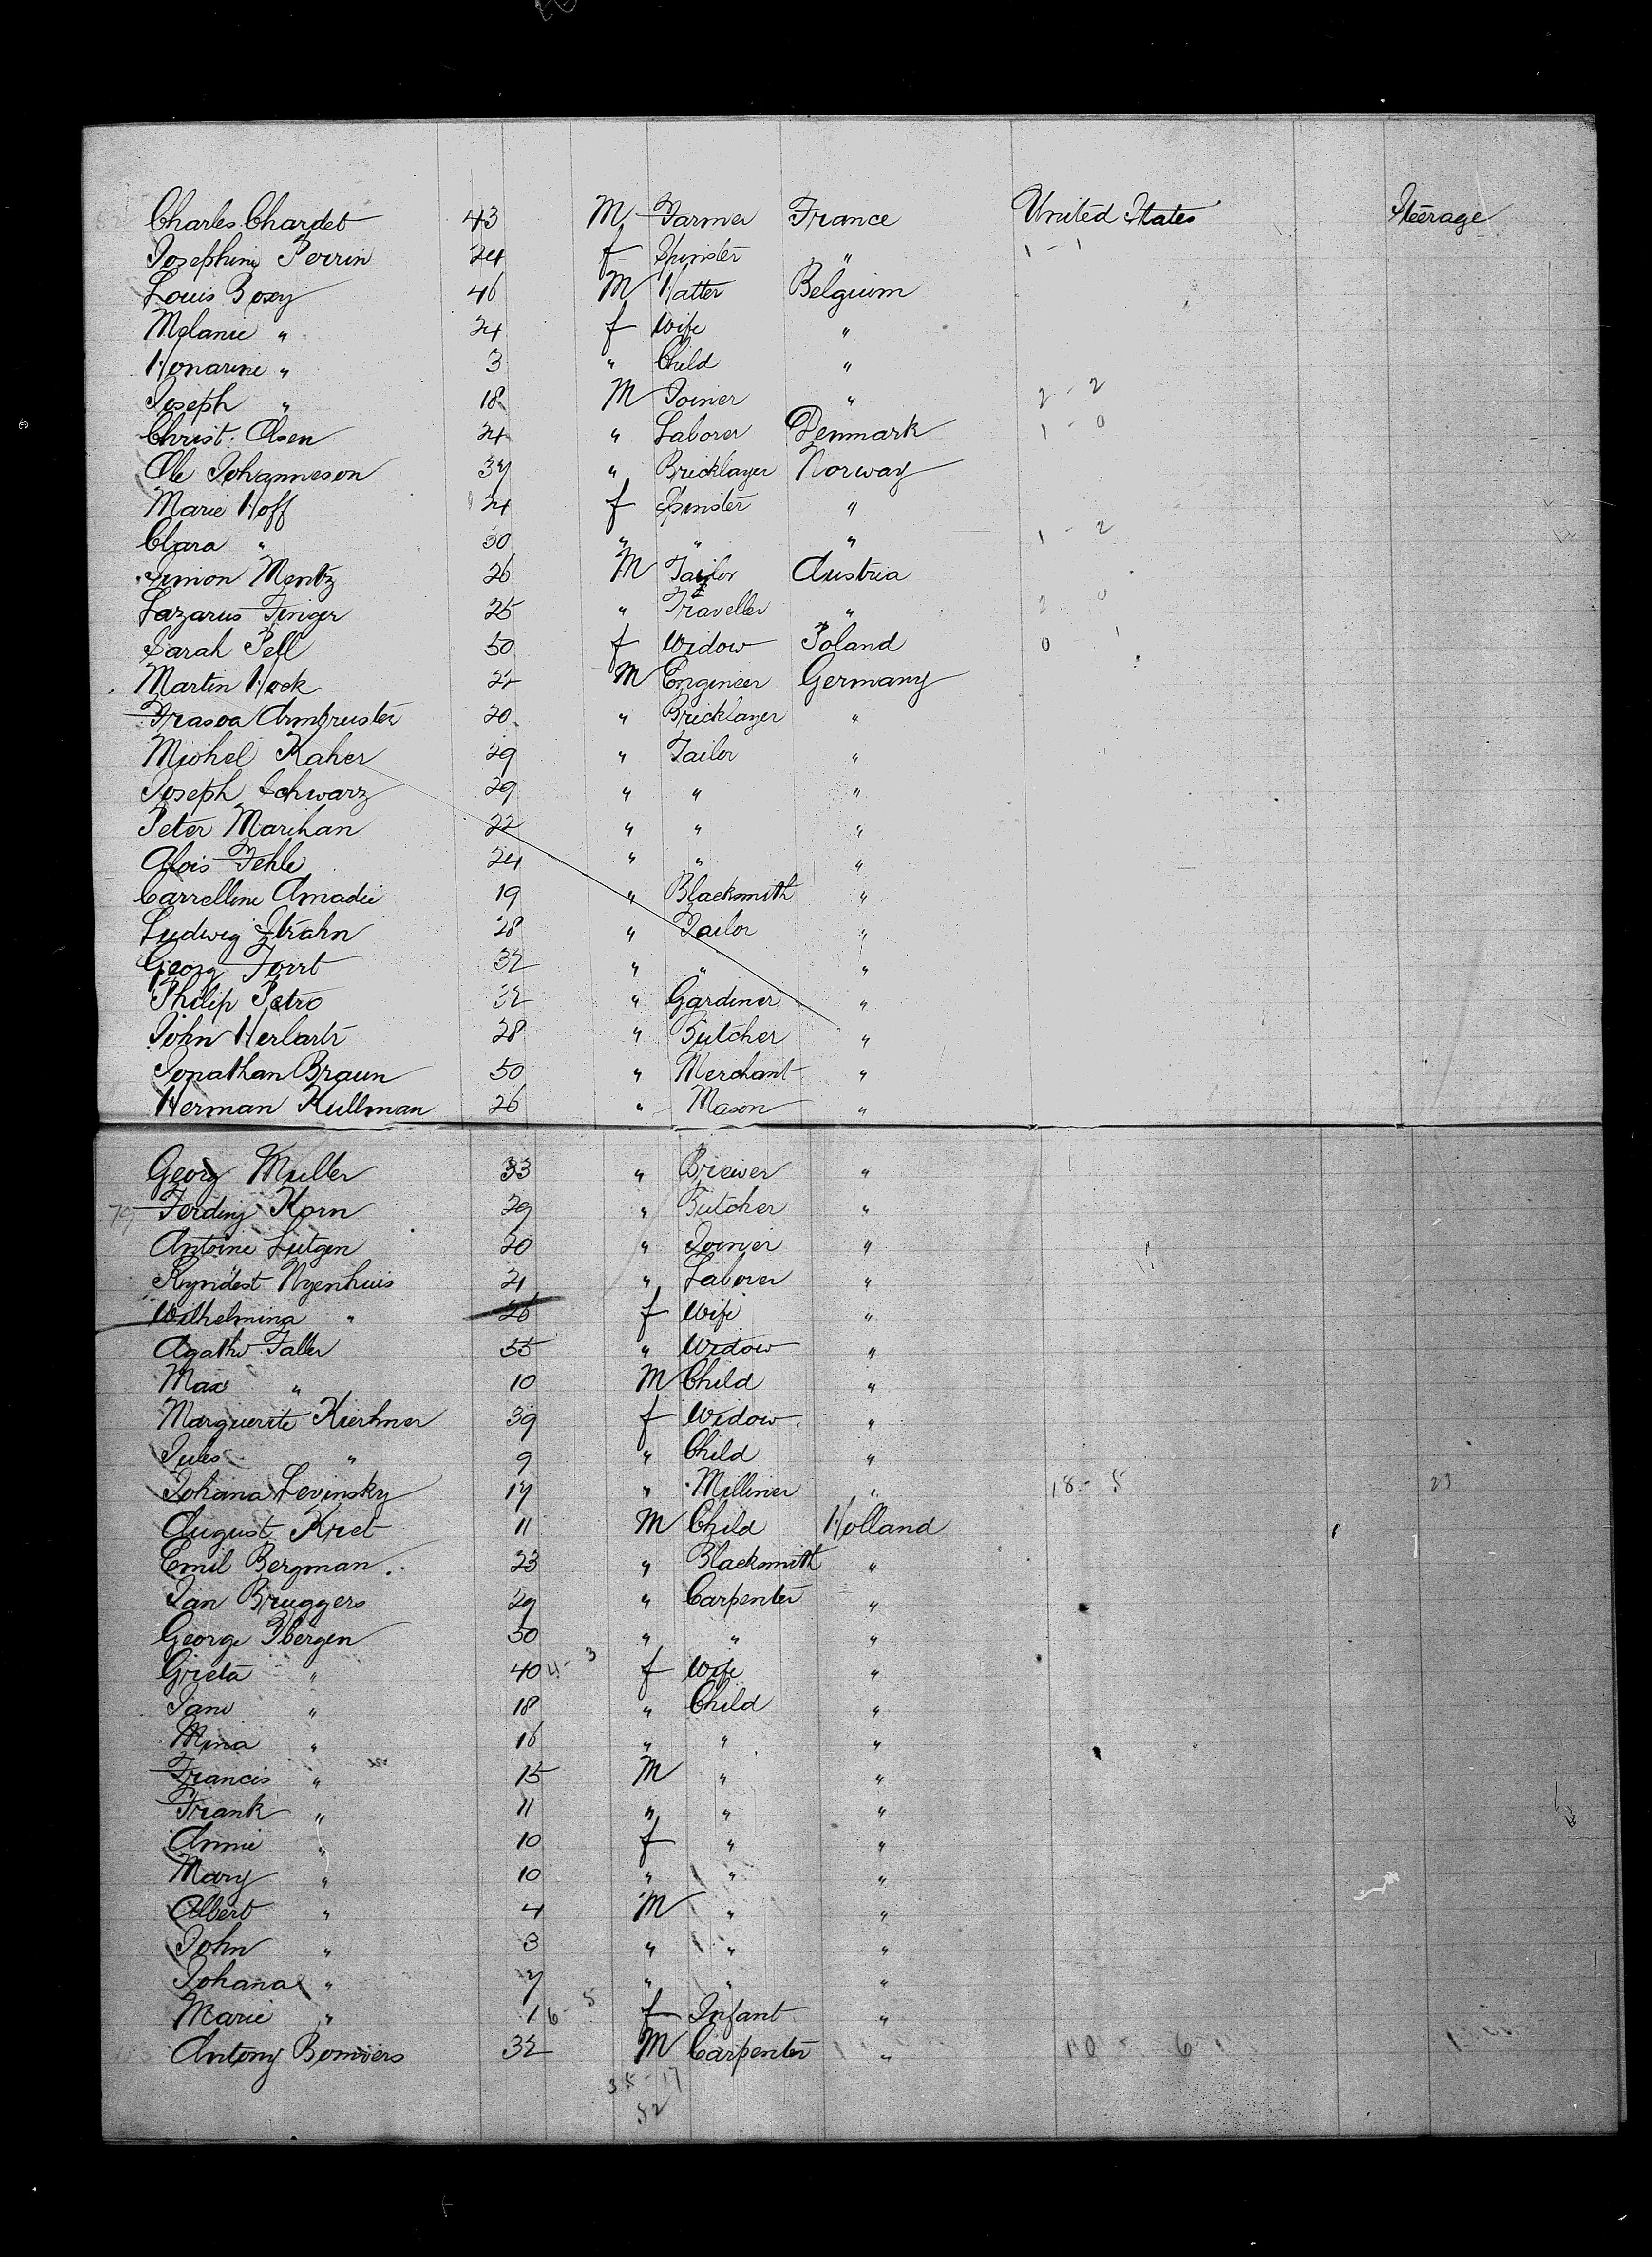 Charles Chardet 43 M Farmer France United States Steerage
Josephine Perrin 24 f Spinster " 1 - 1
Louis Boxy 46 M Hatter Belgium
Melanie " 24 f Wife "
Honarine " 3 " Child "
Joseph " 18 M Joiner " 2 - 2
Christ. Olsen 24 " Laborer Denmark 1 - 0
Ole Johanneson 37 " Bricklayer Norway
Marie Hoff 24 f Spinster "
Clara " 30 " " " 1 - 2
Simon Mentz 26 M Tailor Austria
Lazarus Finger 25 " Traveller " 2 0
Sarah Pell 50 f Widow Poland 0 1
Martin Hock 22 M Engineer Germany
Armbruster 20 " Bricklayer "
Michel Kaher 29 " Tailor "
Joseph Schwarz 29 " " "
Peter Marihan 22 " " "
Alois Fehle 24 " " "
Carrelline Amadie 19 " Blacksmith "
Ludwig Strahn 28 " Tailor "
Georg 32 " " "
Philip Petro 32 " Gardiner "
John 28 " Butcher "
Jonathan Braun 50 " Merchant "
Herman Kullman 26 " Mason "
Georg Muller 33 " Brewer "
79 Ferding Korn 29 " Butcher "
Antoine Lutgen 20 " Joiner "
Nyenhuis 21 " Laborer "
Wilhelmina " 26 f Wife "
Agathe Faller 55 " Widow "
Max " 10 M Child "
Marguerite Kierhner 39 f Widow "
Jules " 9 " Child "
Johana Levinsky 17 " Milliner " 18 - 5 23
August Kret 11 M Child Holland
Emil Bergman 23 " Blacksmith "
Jan Bruggers 29 " Carpenter "
George Ibergen 50 " " "
Greta " 40 4 - 3 f Wife "
Jane " 18 " Child "
Mina " 16 " " "
Francis " 15 M " "
Frank " 11 " " "
Annie " 10 f " "
Mary " 10 " " "
Albert " 4 M " "
John " 3 " " "
Johana " 7 " " "
Marie " 1 6 - 5 f Infant "
Antony Bomwers 32 M Carpenter " 10 - 6
35 - 17
52